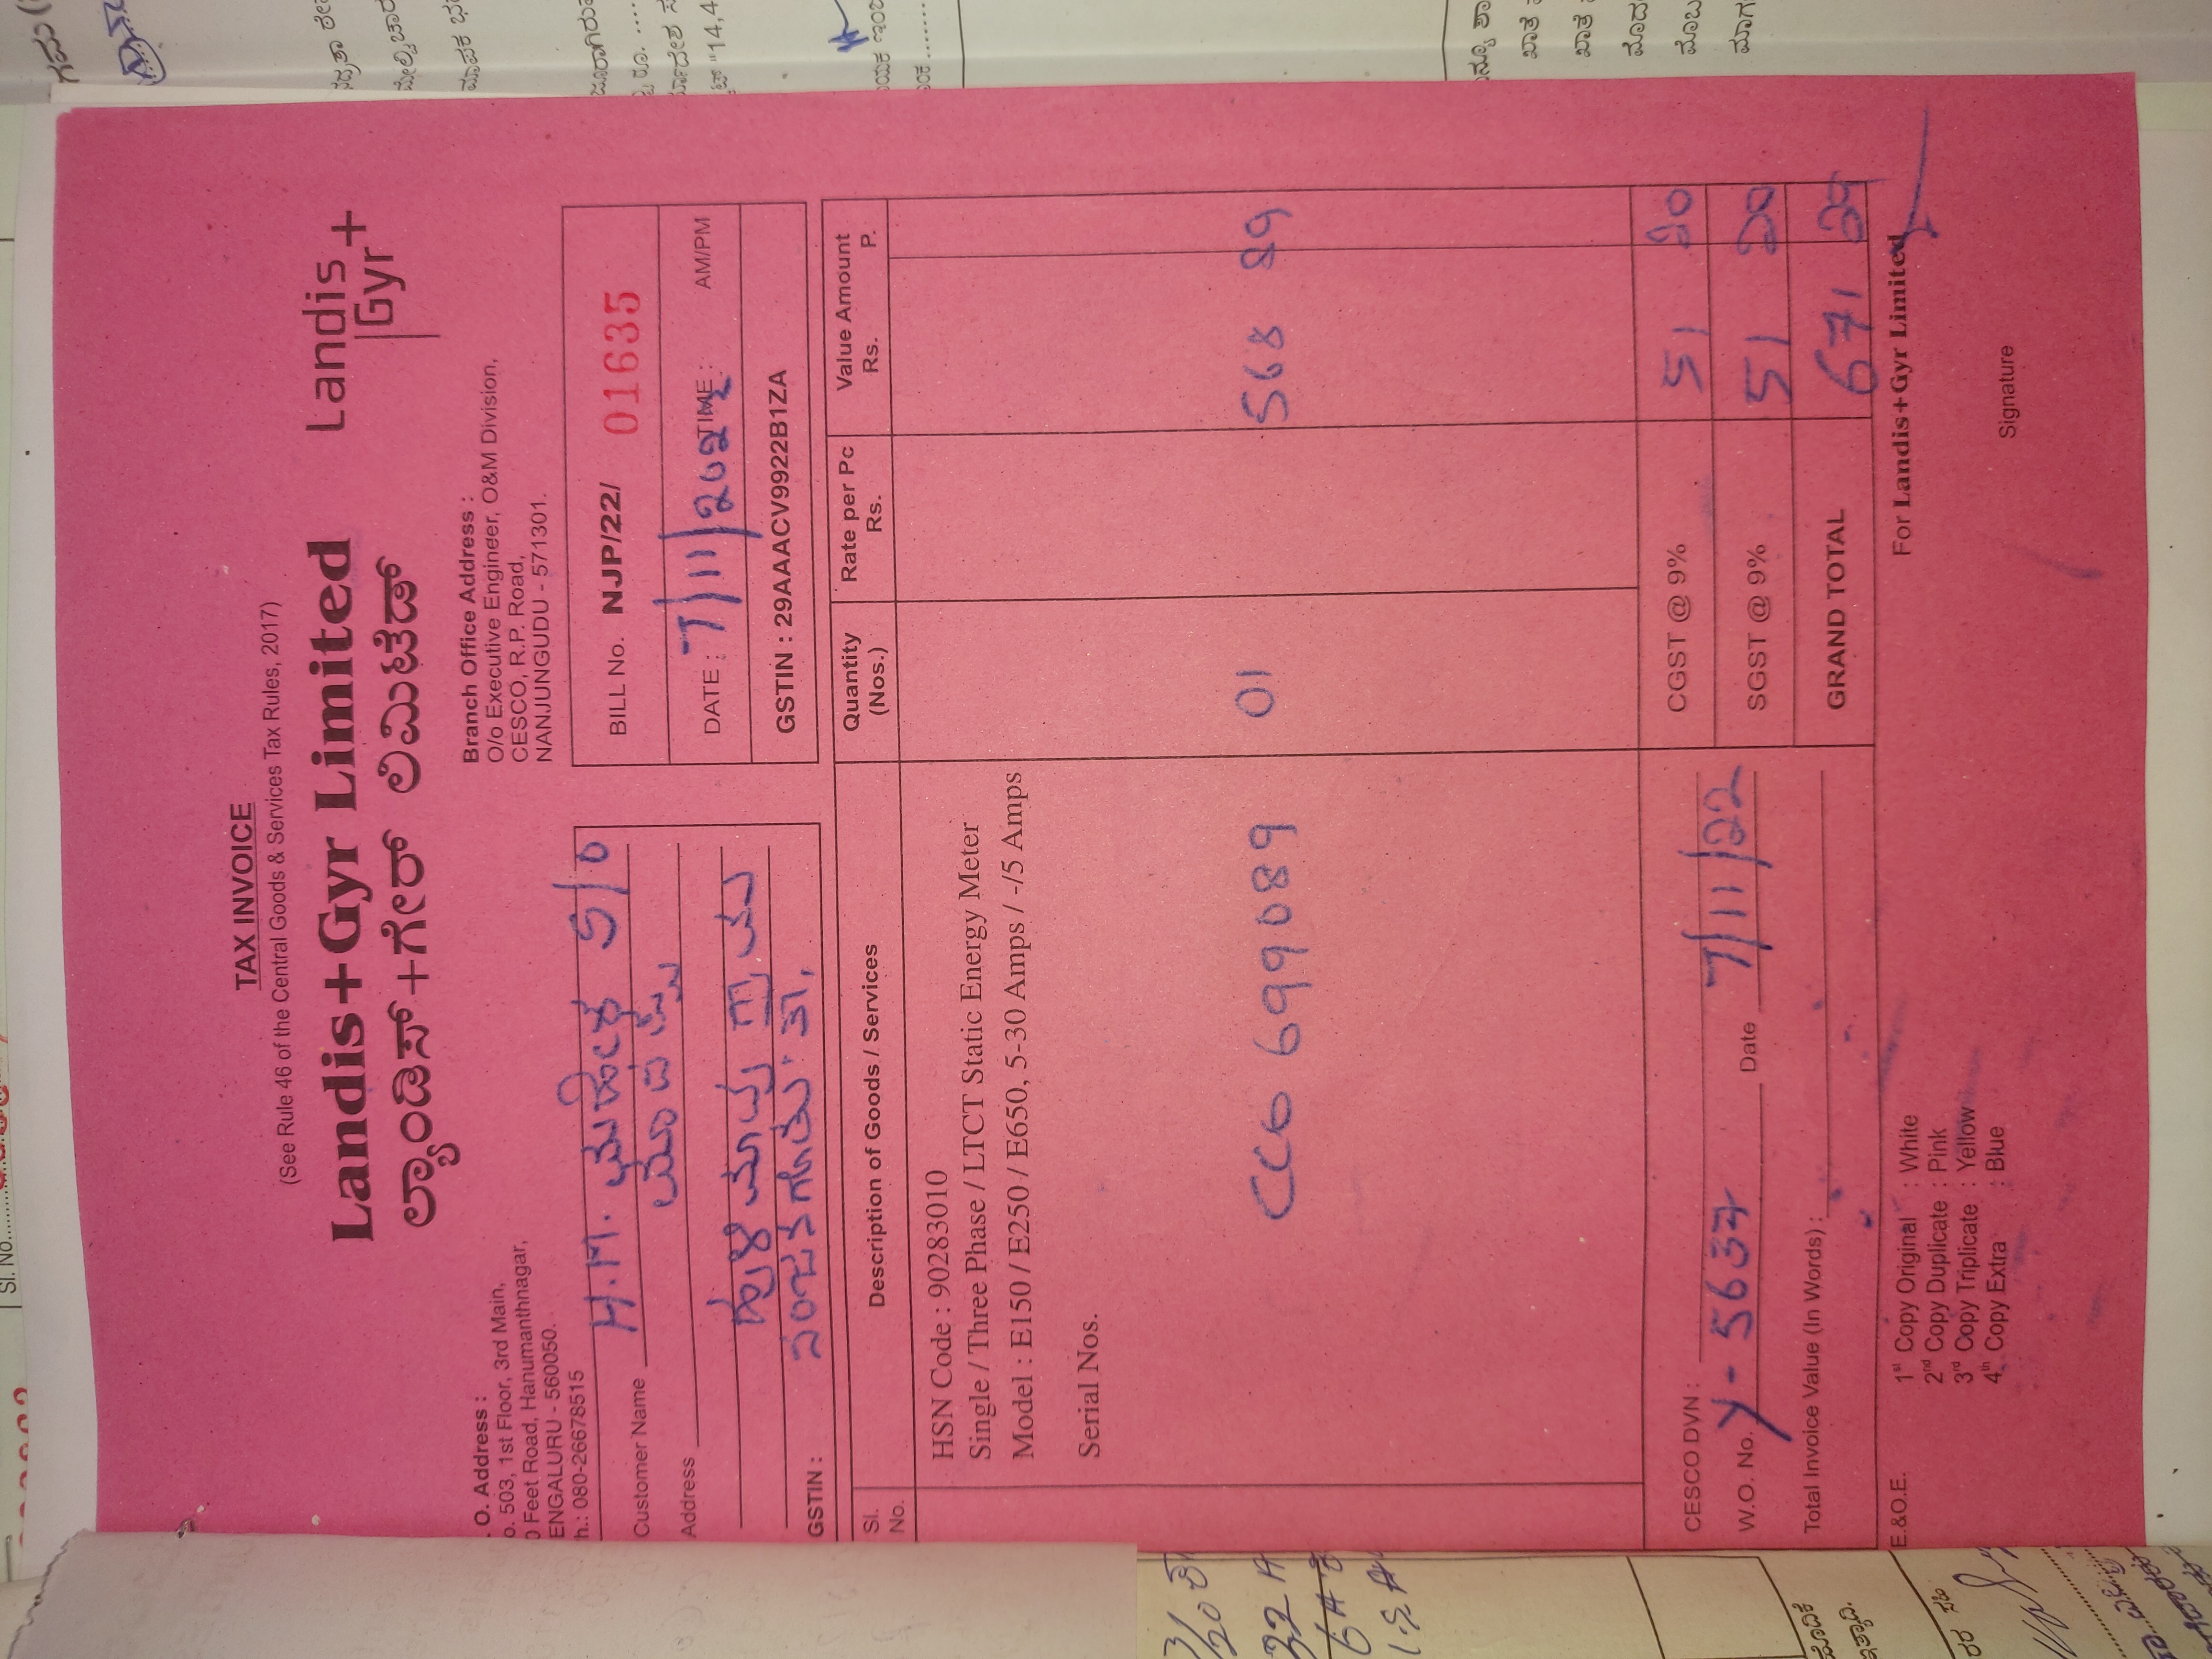 TAX INVOICE
(See Rule 46 of the Central Goods & Services Tax Rules, 2017)
Landis+Gyr Limited
ಲ್ಯಾಂಡಿಸ್+ಗೇರ್ ಲಿಮಿಟೆಡ್
Landis
Gyr+
. O. Address :
o. 503, 1st Floor, 3rd Main,
0 Feet Road, Hanumanthnagar,
ENGALURU - 560050.
h.: 080-26678515
Branch Office Address :
O/o Executive Engineer, O&M Division,
CESCO, R.P. Road,
NANJUNGUDU - 571301.
Customer Name H.M. ಮಹದೇವ S/o
Address
ಹುಳಿಮಾವು ಗ್ರಾಮ
ನಂಜನಗೂಡು ತಾ,
GSTIN :
BILL No. NJP/22/ 01635
DATE : 7/11/2022 TIME : AM/PM
GSTIN : 29AAACV9922B1ZA
Sl. No. Description of Goods / Services Quantity (Nos.) Rate per Pc Rs. Value Amount Rs. P.
HSN Code : 90283010
Single / Three Phase / LTCT Static Energy Meter
Model : E150 / E250 / E650, 5-30 Amps / -/5 Amps
Serial Nos.
CC6 6999089 01 568 89
CESCO DVN :
W.O. No. Y-5637 Date 7/11/22
Total Invoice Value (In Words) :
CGST @ 9% 51 20
SGST @ 9% 51 20
GRAND TOTAL 671 29
E.&O.E.
1st Copy Original : White
2nd Copy Duplicate : Pink
3rd Copy Triplicate : Yellow
4th Copy Extra : Blue
For Landis+Gyr Limited
Signature
Sl. No.